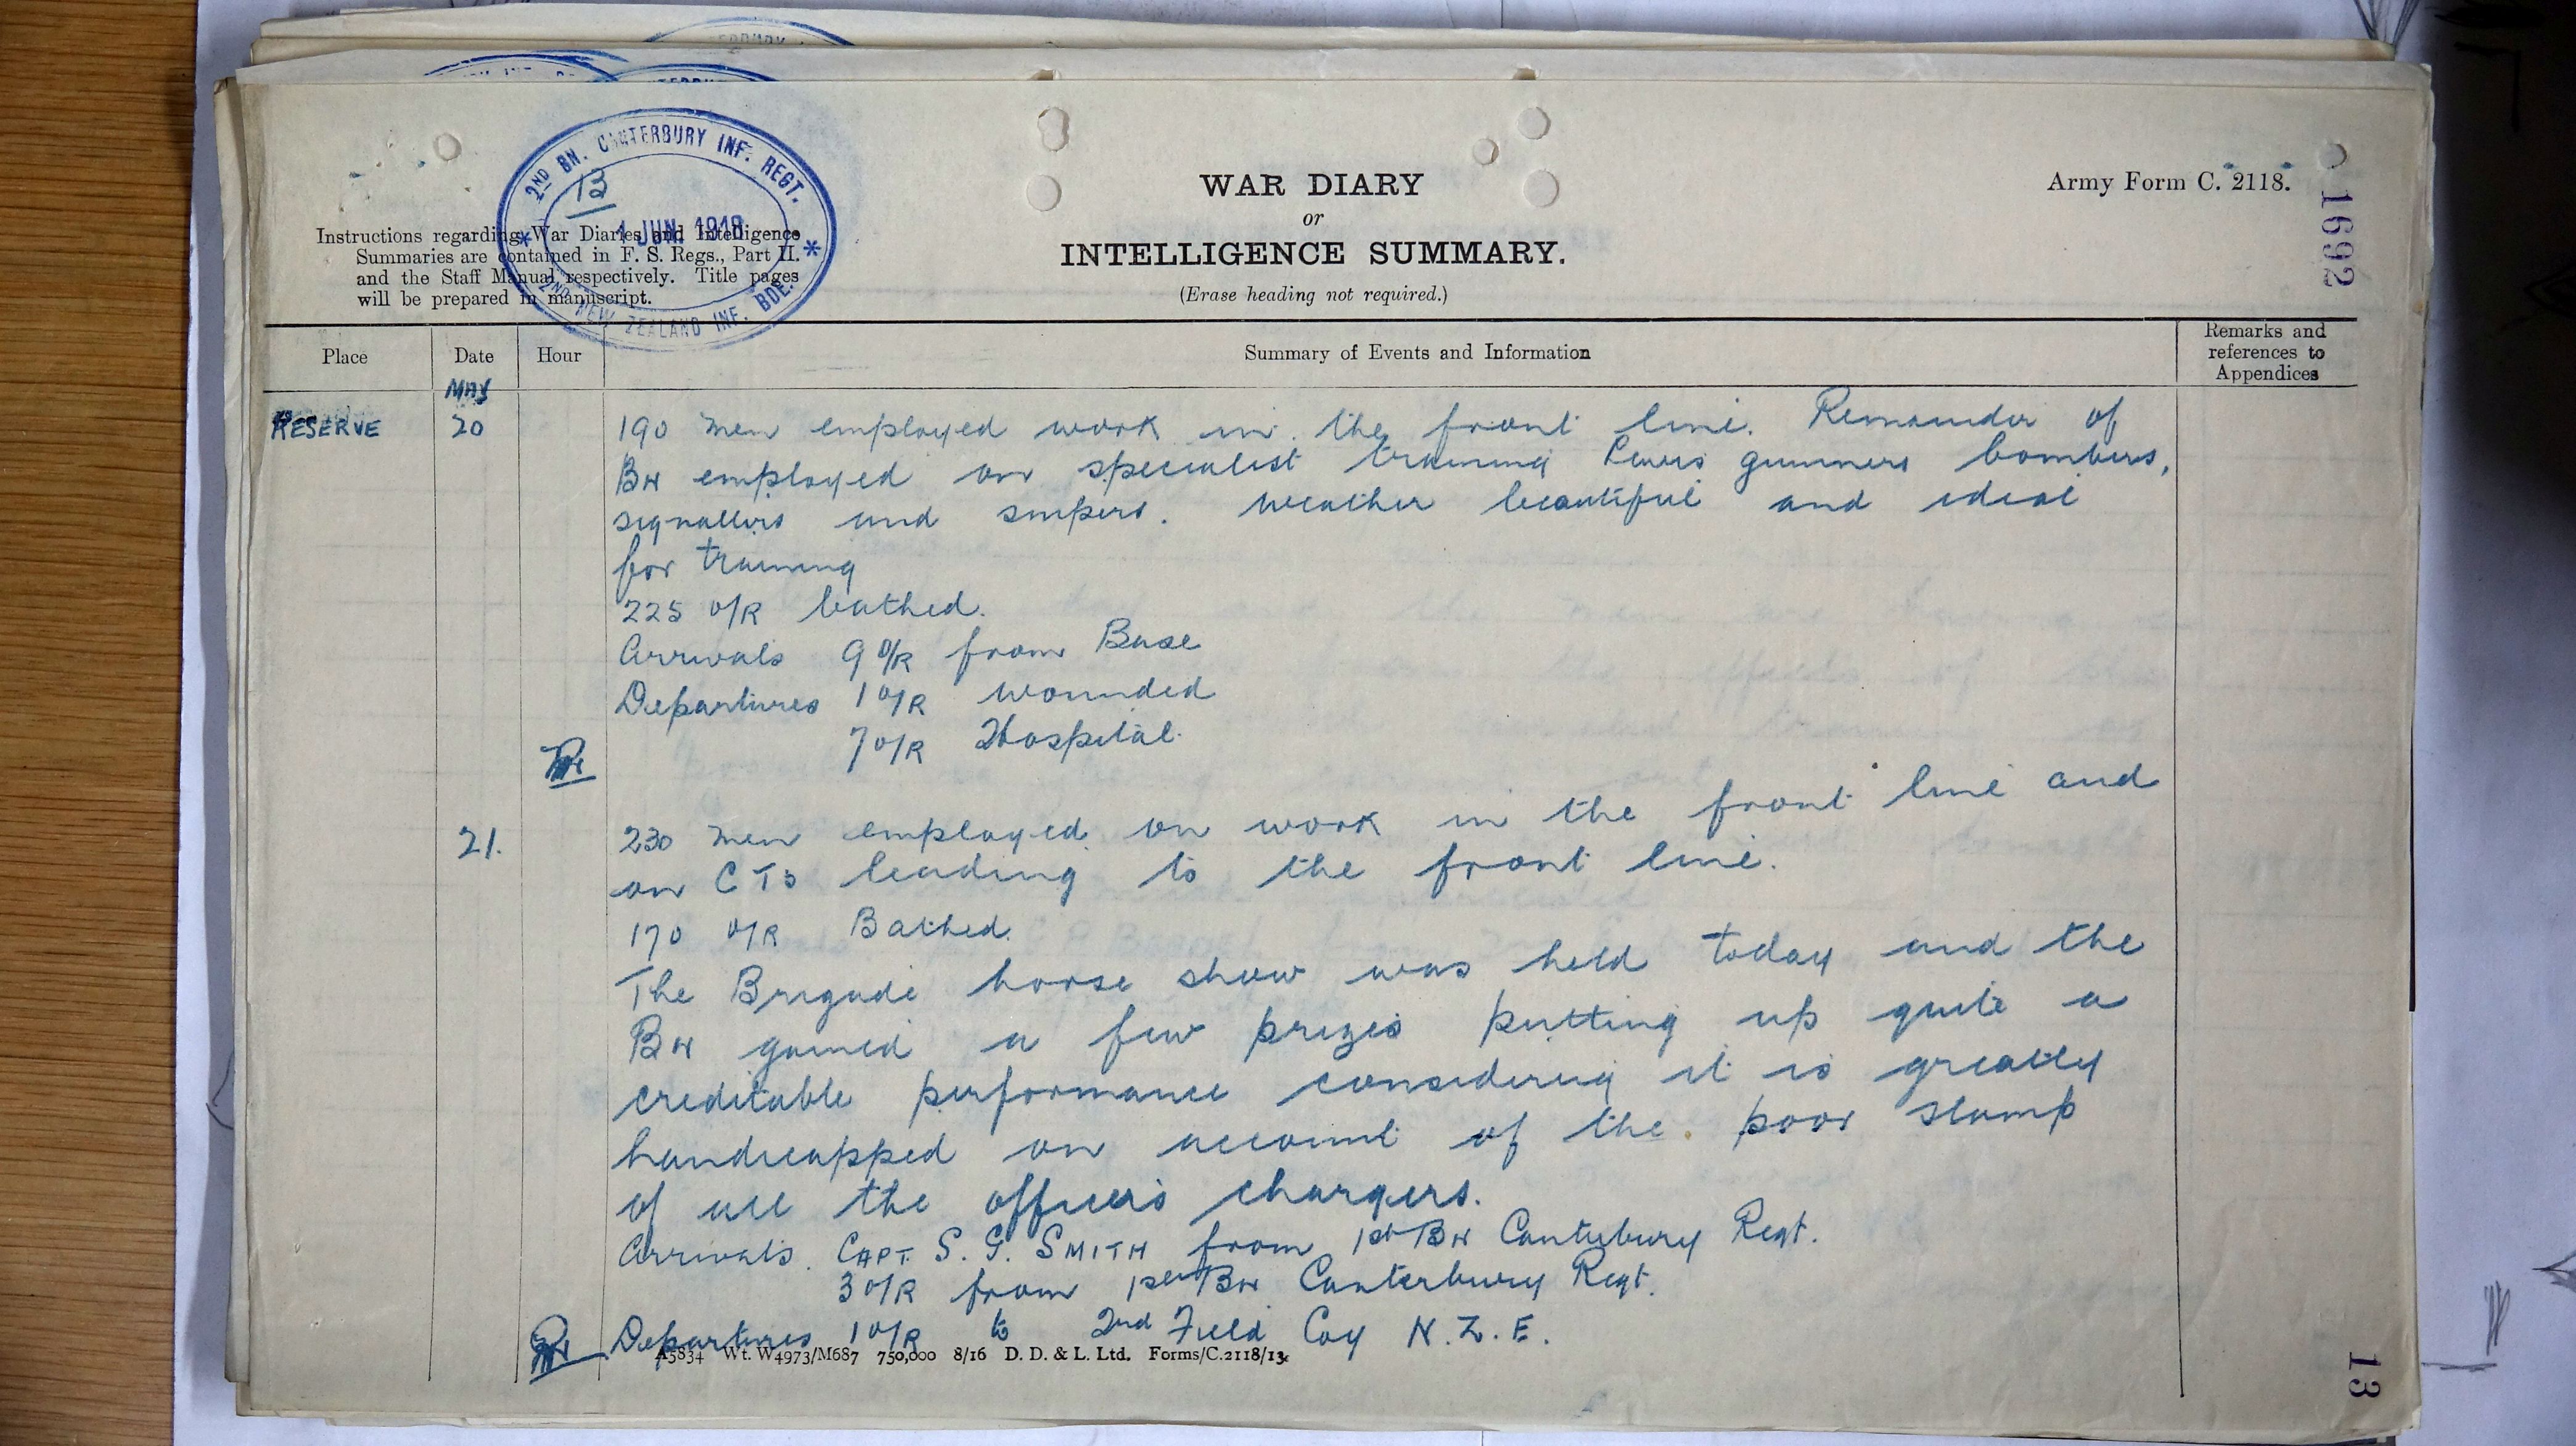 2ND BN. CANTERBURY INF. REGT.
13
1 JUN. 1918
2ND NEW ZEALAND INF. BDE.
Instructions regarding War Diaries and Intelligence
Summaries are contained in F. S. Regs., Part II.
and the Staff Manual respectively. Title pages
will be prepared in manuscript.
WAR DIARY
or
INTELLIGENCE SUMMARY.
(Erase heading not required.)
Army Form C. 2118.
1692
Place Date Hour Summary of Events and Information Remarks and references to Appendices
MAY
RESERVE 20 190 men employed work in the front line. Remainder of
BN employed on specialist training Lewis gunners bombers,
signallers and snipers. Weather beautiful and ideal
for training
225 O/R bathed.
Arrivals 9 O/R from Base
Departures 1 O/R wounded
7 O/R Hospital.
21. 230 men employed on work in the front line and
on CTs leading to the front line.
170 O/R Bathed.
The Brigade horse show was held today and the
BN gained a few prizes putting up quite a
creditable performance considering it is greatly
handicapped on account of the poor stamp
of all the officers chargers.
Arrivals. CAPT. S. G. SMITH from 1st BN Canterbury Regt.
3 O/R from 1st BN Canterbury Regt.
Departures 1 O/R to 2nd Field Coy N.Z.E.
A5834 Wt. W4973/M687 750,000 8/16 D. D. & L. Ltd. Forms/C.2118/13.
13